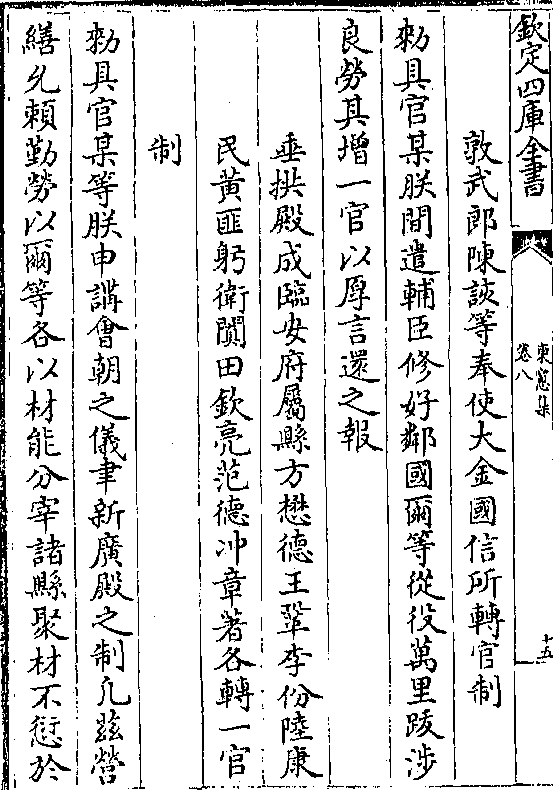 欽定四庫全書
東窗集
卷八
十五
敦武郎陳談等奉使大金國信所轉官制
勑具官某朕間遣輔臣修好鄰國爾等從役萬里跋涉
良勞其增一官以厚言還之報
垂拱殿成臨安府屬縣方懋德王鞏李份陸康
民黄匪躬衛闐田欽亮范德冲章著各轉一官
制
勑具官某等朕申講會朝之儀聿新廣殿之制凡兹營
繕允賴勤勞以爾等各以材能分宰諸縣聚材不愆於